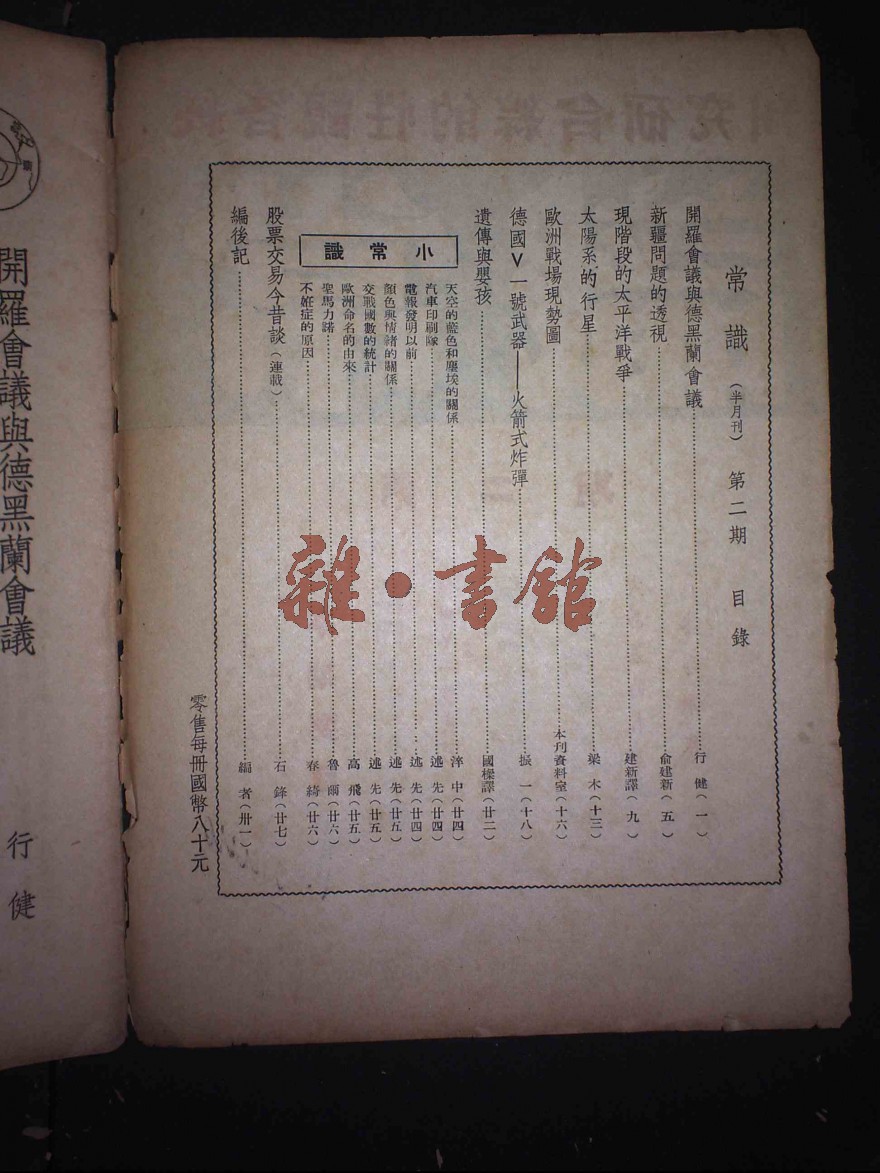 常識（半月刊） 第二期 目錄
開羅會議與德黑蘭會議……行健（一）
新疆問題的透視……俞建新（五）
現階段的太平洋戰爭……建新譯（九）
太陽系的行星……梁木（十三）
歐洲戰場現勢圖……本刊資料室（十六）
德國V一號武器——火箭式炸彈……振一（十八）
遺傳與嬰孩……國樑譯（廿二）
小常識
天空的藍色和塵埃的關係……淬中（廿四）
汽車印刷隊……述先（廿四）
電報發明以前……述先（廿四）
顏色與情緒的關係……述先（廿五）
交戰國數的統計……述先（廿五）
歐洲命名的由來……高飛（廿五）
聖馬力諾……魯爾（廿六）
不姙症的原因……春綺（廿六）
股票交易今昔談（連載）……石鋒（廿七）
編後記……編者（卅一）
零售每冊國幣八十元
開羅會議與德黑蘭會議
行健
雜·書館